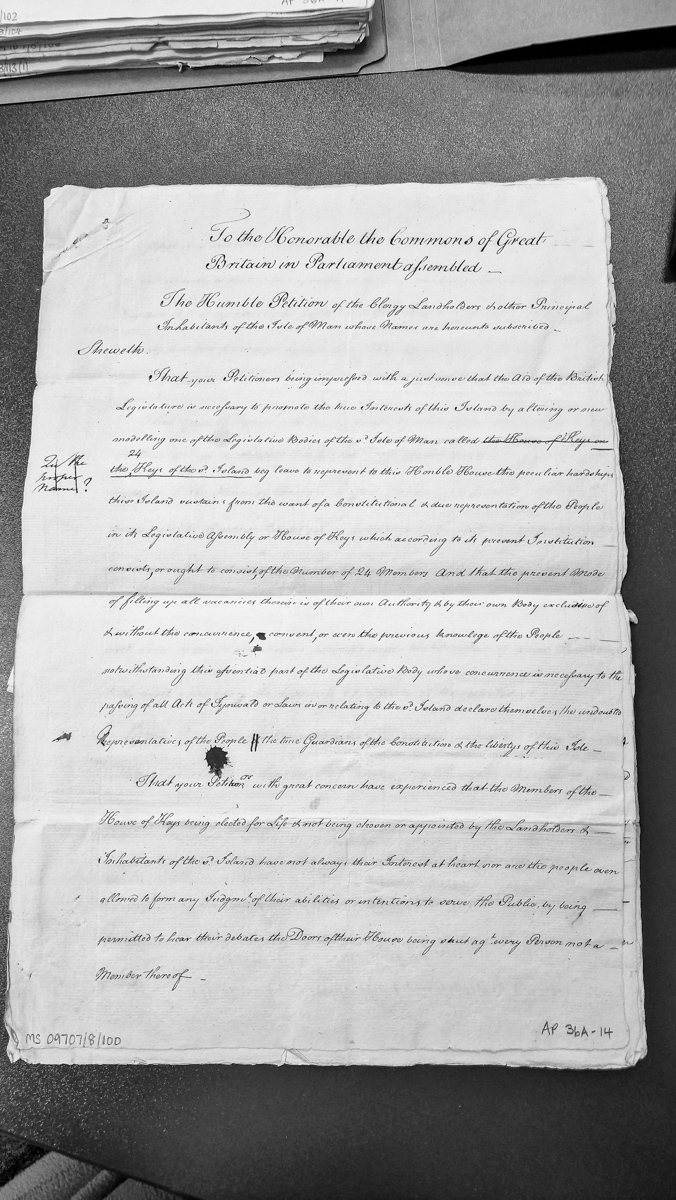 /102
AP 36A-1
To the Honorable the Commons of Great
Britain in Parliament assembled —
The Humble Petition of the Clergy Landholders & other Principal
Inhabitants of the Isle of Man whose Names are hereunto subscribed —
Sheweth
That your Petitioners being impressed with a just sense that the Aid of the British
Legislature is necessary to promote the true Interests of this Island by altering or new
modelling one of the Legislative Bodies of the sd. Isle of Man called the House of Keys or
24
the Keys of the sd. Island beg leave to represent to this Honble House the peculiar hardships
Qu the
proper
Name?
this Island sustains from the want of a Constitutional & due representation of the People
in its Legislative Assembly or House of Keys which according to its present Institution —
consists, or ought to consist, of the Number of 24 Members And that the present Mode
of filling up all vacancies therein is of their own Authority & by their own Body exclusive of
& without the concurrence, consent, or even the previous knowlege of the People — —
notwithstanding this essential part of the Legislative Body whose concurrence is necessary to the
passing of all Acts of Tynwald or Laws over relating to the sd. Island declare themselves the undoubted
Representatives of the People the true Guardians of the Constitution & the libertys of this Isle —
That your Petitionrs with great concern have experienced that the Members of the —
House of Keys being elected for Life & not being chosen or appointed by the Landholders &
Inhabitants of the sd. Island have not always their Interest at heart nor are the people even
allowed to form any Judgmt. of their abilities or intentions to serve the Public, by being —
permitted to hear their debates the Doors of their House being shut agt. every Person not a —
Member thereof —
MS 09707/8/100
AP 36A-14